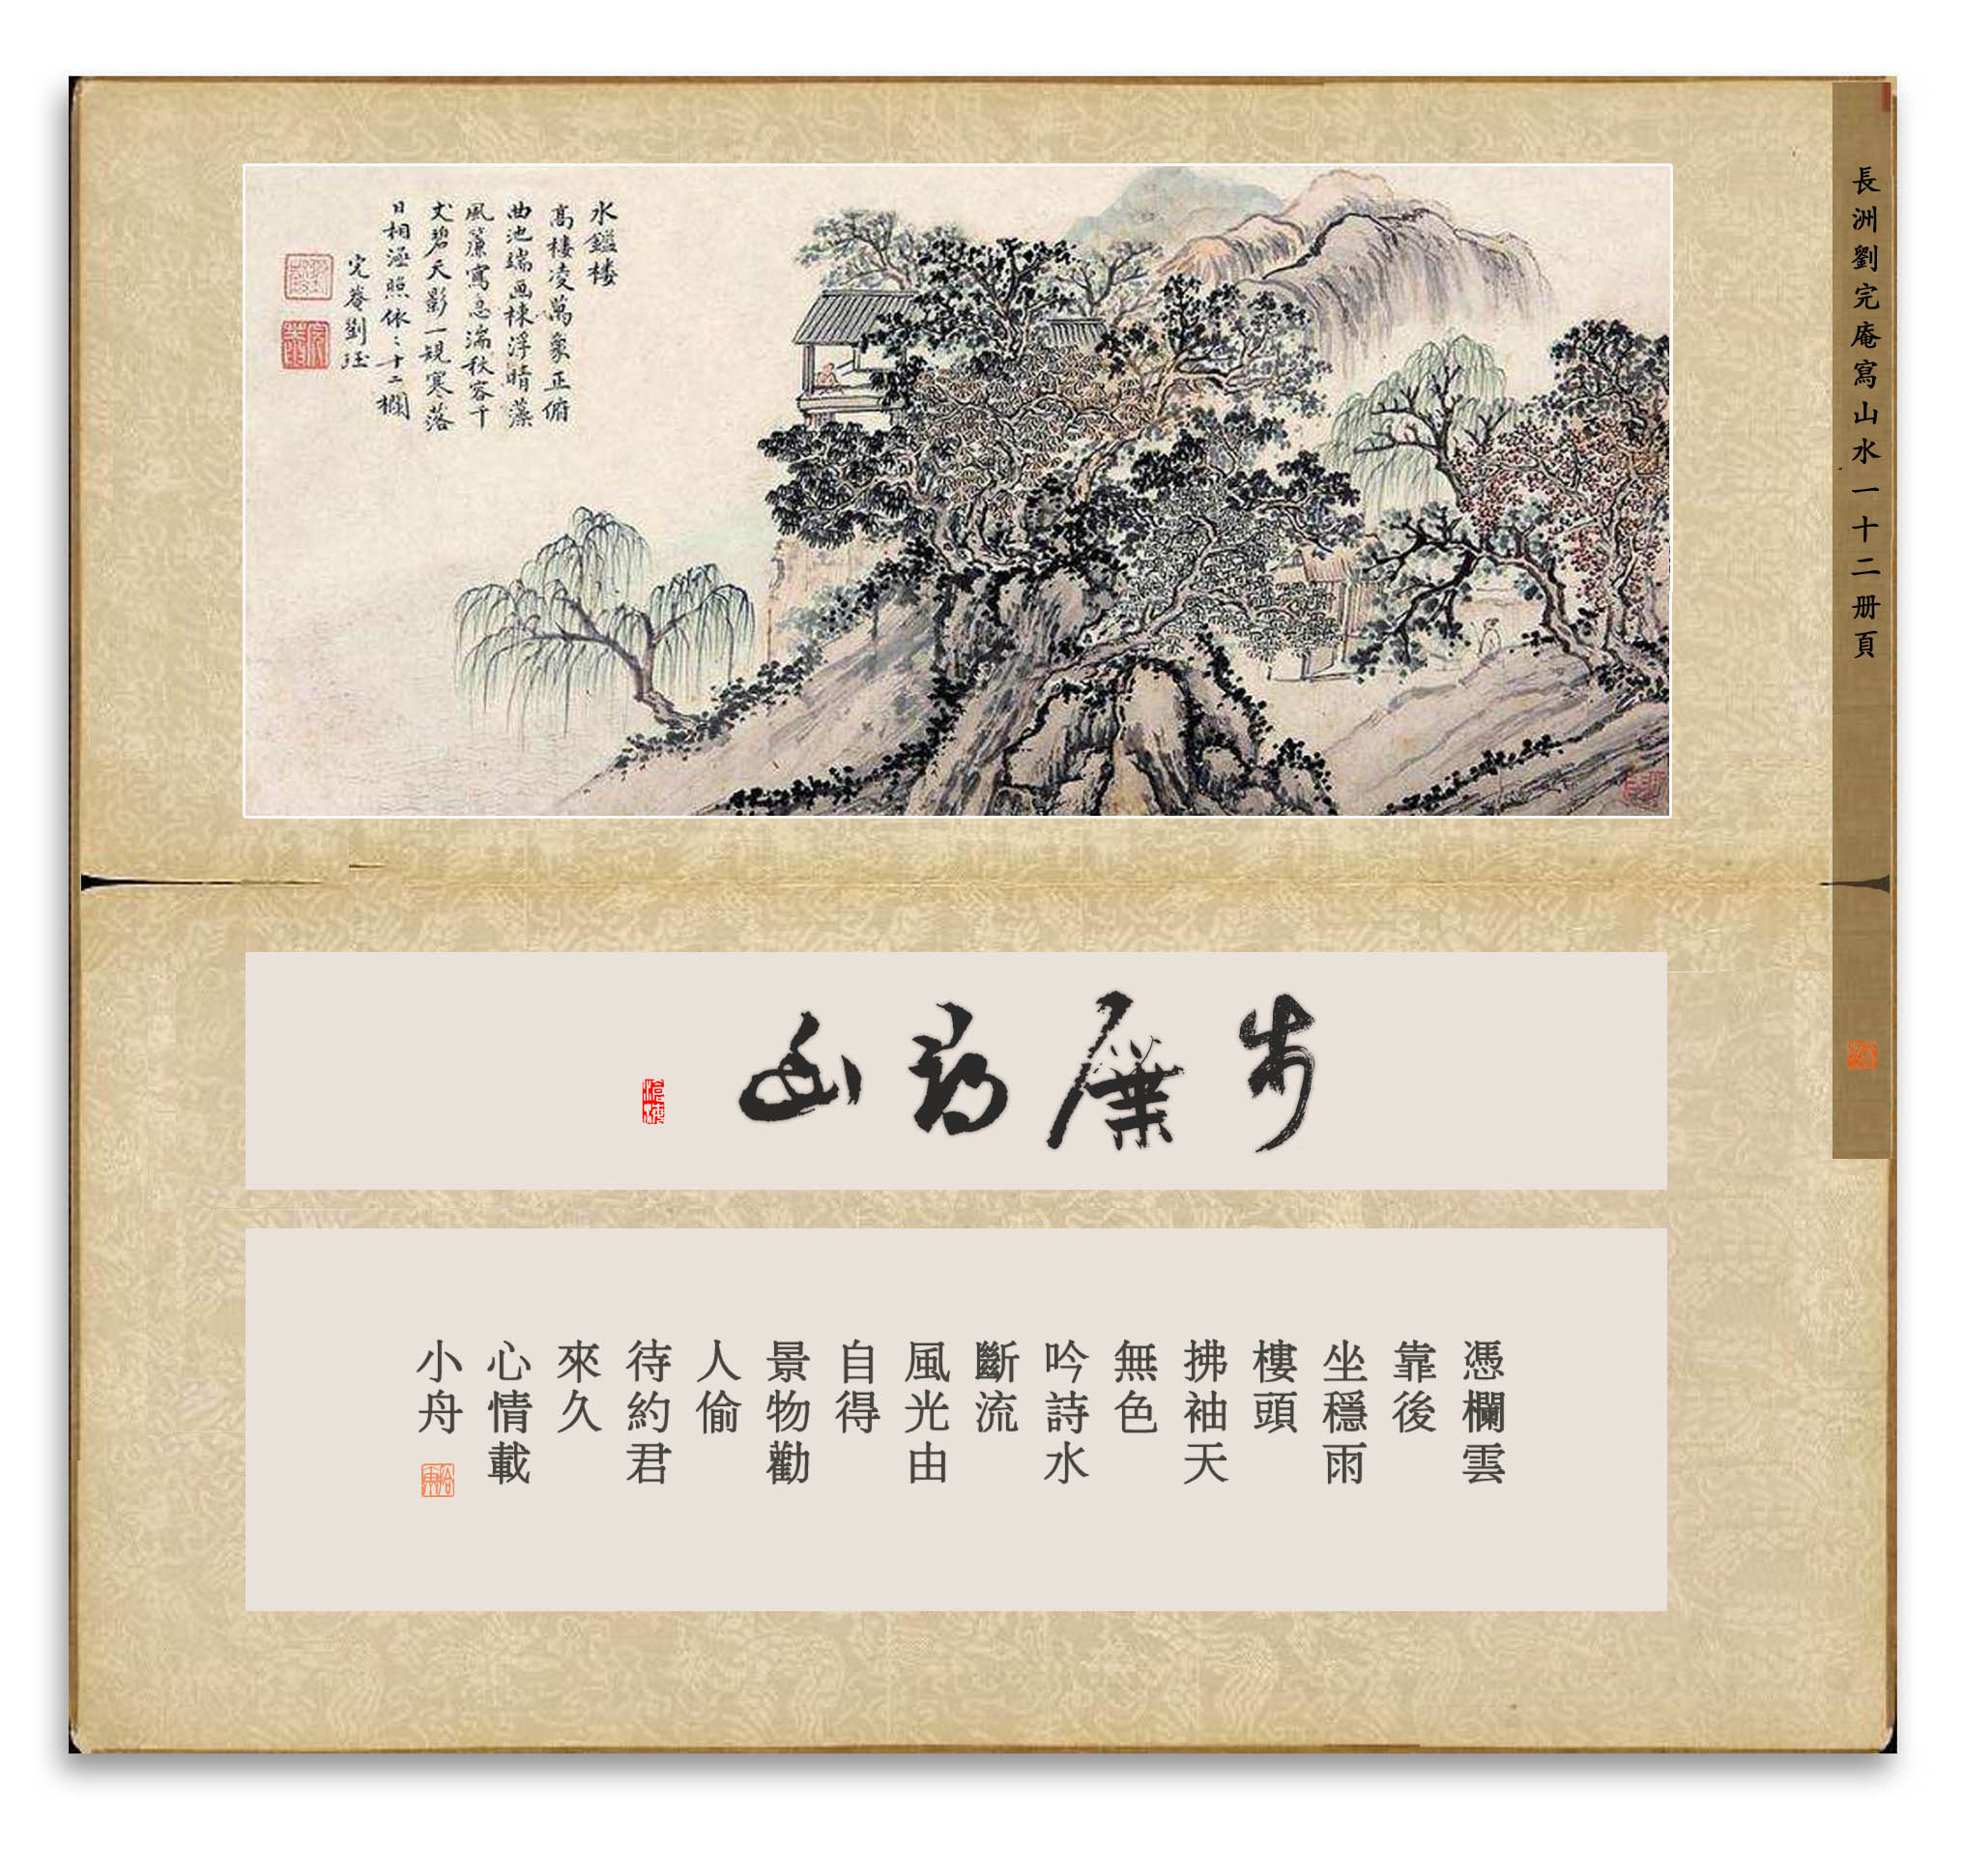 長洲劉完庵寫山水一十二册頁
水鑑樓
高樓凌萬象正俯
曲池端画棟浮晴藻
風簾寫急湍秋容千
丈碧天影一規寒落
日相照依〻十二欄
完菴劉珏
步屧尋幽
憑欄雲
靠後
坐穩雨
樓頭
拂袖天
無色
吟詩水
斷流
風光由
自得
景物勸
人偷
待約君
來久
心情載
小舟